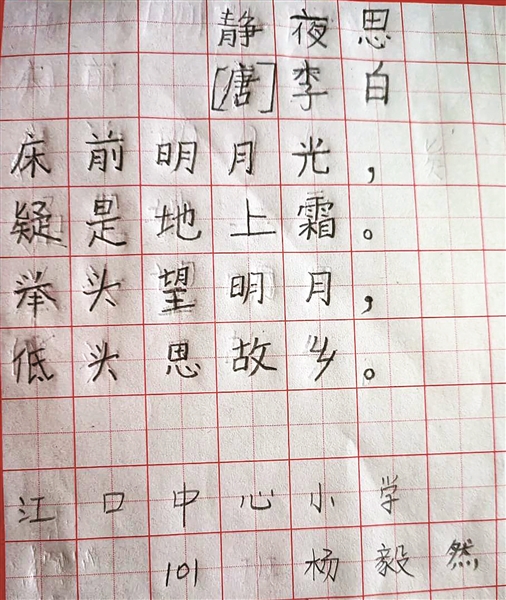 静夜思
[唐]李白
床前明月光，
疑是地上霜。
举头望明月，
低头思故乡。
江口中心小学
101 杨毅然